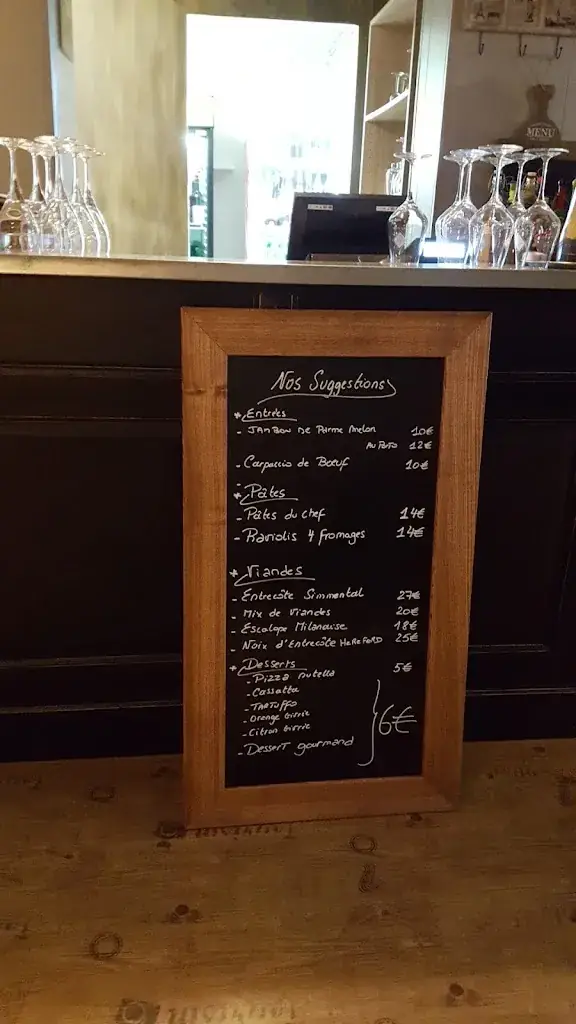 MENU
Nos Suggestions
* Entrées
- Jambon de Parme Melon 10€
Au Porto 12€
- Carpaccio de Bœuf 10€
-
* Pâtes
- Pâtes du chef 14€
- Raviolis 4 fromages 14€
* Viandes
- Entrecôte Simmental 27€
- Mix de Viandes 20€
- Escalope Milanaise 18€
- Noix d'Entrecôte HEREFORD 25€
* Desserts
- Pizza nutella 5€
- Cassatta
- TARTUFFO
- Orange givrée
- Citron givrée
- Dessert gourmand
6€